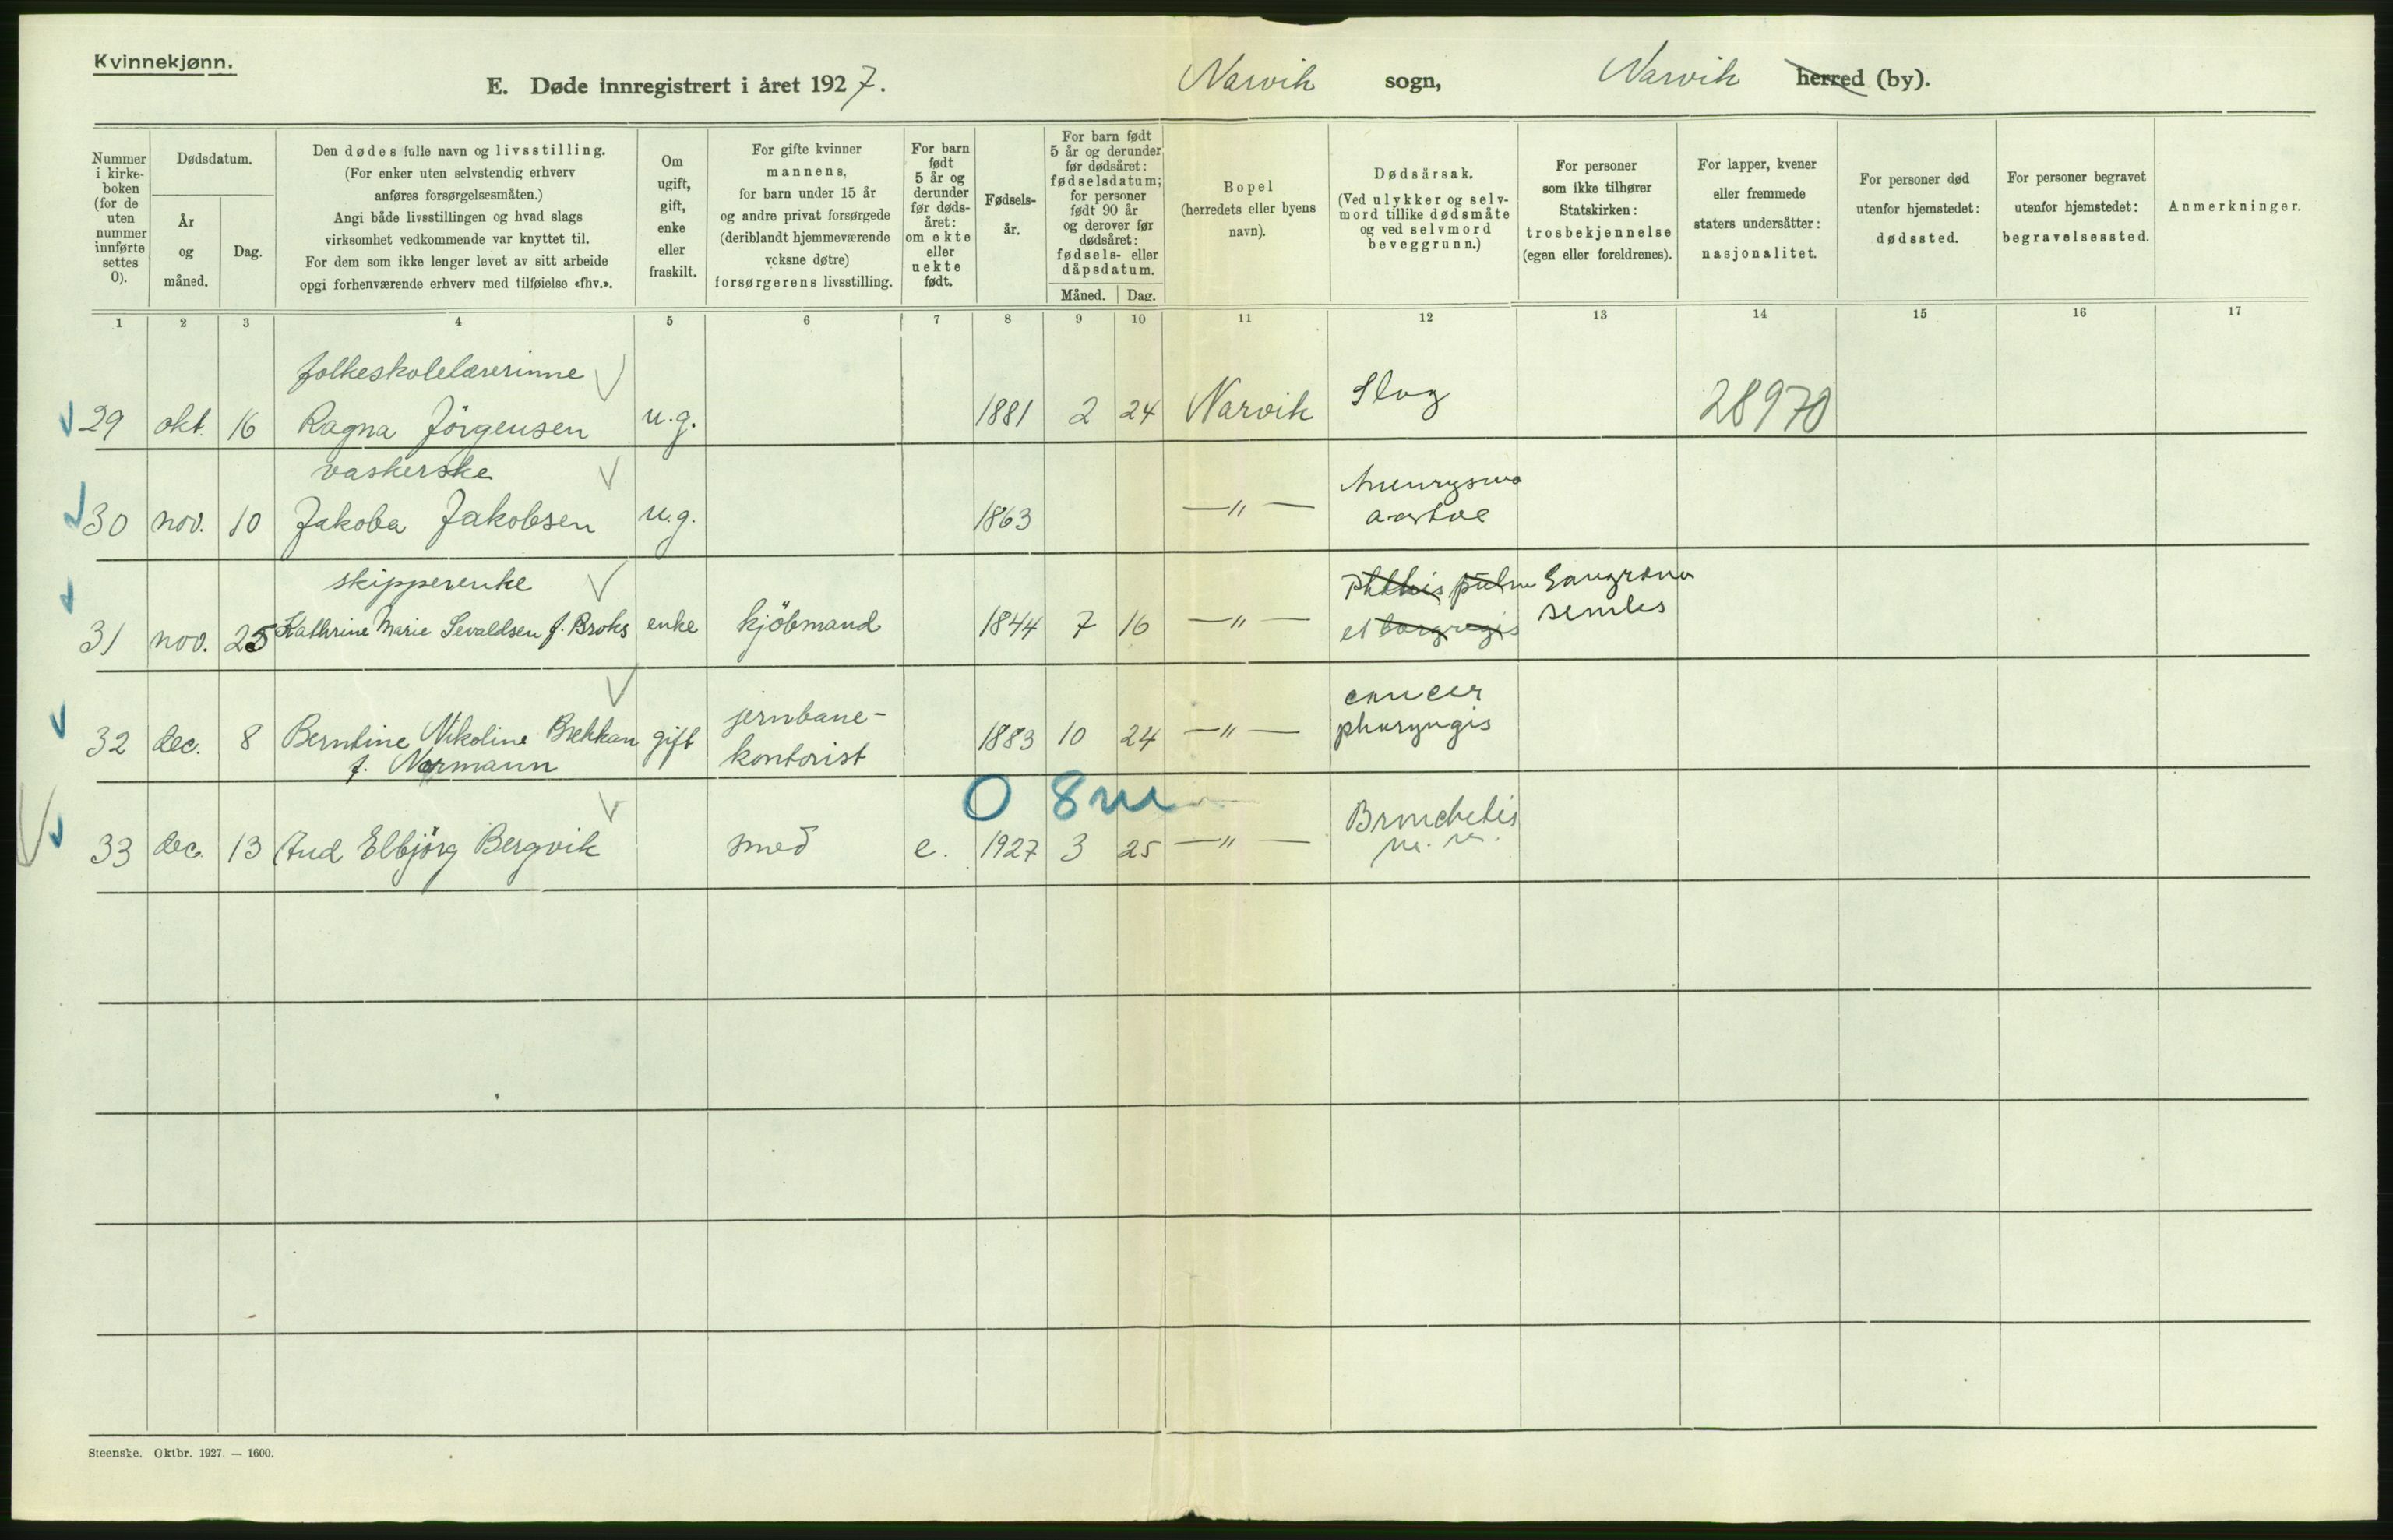 Kvinnekjønn.
E. Døde innregistrert i året 1927. Narvik sogn, Narvik herred (by).
Nummer i kirke-boken (for de uten nummer innførte settes 0).
Dødsdatum.
År og måned.
Dag.
Den dødes fulle navn og livsstilling.
(For enker uten selvstendig erhverv
anføres forsørgelsesmåten.)
Angi både livsstillingen og hvad slags
virksomhet vedkommende var knyttet til.
For dem som ikke lenger levet av sitt arbeide
opgi forhenværende erhverv med tilføielse «fhv.».
Om ugift, gift, enke eller fraskilt.
For gifte kvinner
mannens,
for barn under 15 år
og andre privat forsørgede
(deriblandt hjemmeværende
voksne døtre)
forsørgerens livsstilling.
For barn født 5 år og derunder før døds-året: om ekte eller uekte født.
Fødsels-år.
For barn født
5 år og derunder
før dødsåret:
fødselsdatum;
for personer
født 90 år
og derover før
dødsåret:
fødsels- eller
dåpsdatum.
Måned. Dag.
Bopel
(herredets eller byens
navn).
Dødsårsak.
(Ved ulykker og selv-
mord tillike dødsmåte
og ved selvmord
beveggrunn.)
For personer
som ikke tilhører
Statskirken:
trosbekjennelse
(egen eller foreldrenes).
For lapper, kvener
eller fremmede
staters undersåtter:
nasjonalitet.
For personer død
utenfor hjemstedet:
dødssted.
For personer begravet
utenfor hjemstedet:
begravelsessted.
Anmerkninger.
1 2 3 4 5 6 7 8 9 10 11 12 13 14 15 16 17
folkeskolelærerinne
29 okt. 16 Ragna Jörgensen u.g. 1881 2 24 Narvik Slag 28970
vaskerske
30 nov. 10 Jakoba Jakobsen u.g. 1863 —„— Aneurysma
aortae
skipperenke
31 nov. 25 Kathrine Marie Sevaldsen f. Broks enke kjöbmand 1844 7 16 —„— Phthis pulm Gangræna
et senilis
32 dec. 8 Berntine Nikoline Brekkan gift jernbane-
kontorist 1883 10 24 —„— cancer
pharyngis
f. Normann
0 8 m
33 dec. 13 Aud Elbjörg Bergvik smed e. 1927 3 25 —„— Bronchitis
Steenske. Oktbr. 1927. — 1600.